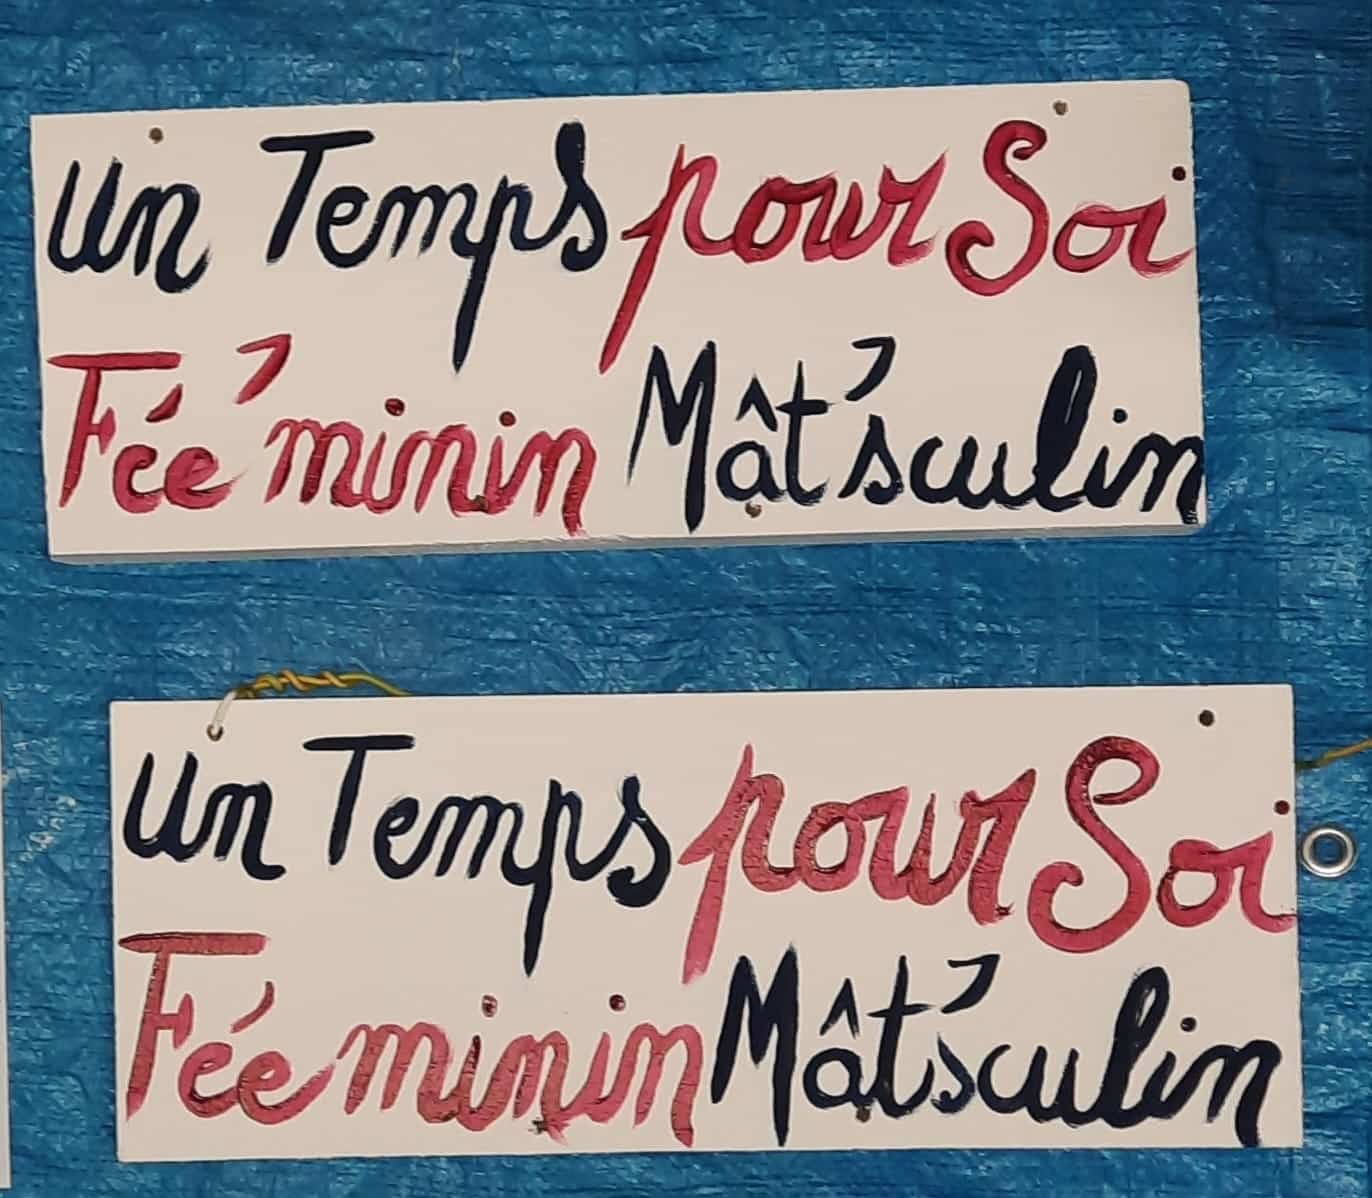 un Temps pour Soi
Fée'minin Mât'sculin
un Temps pour Soi
Fée minin Mât'sculin